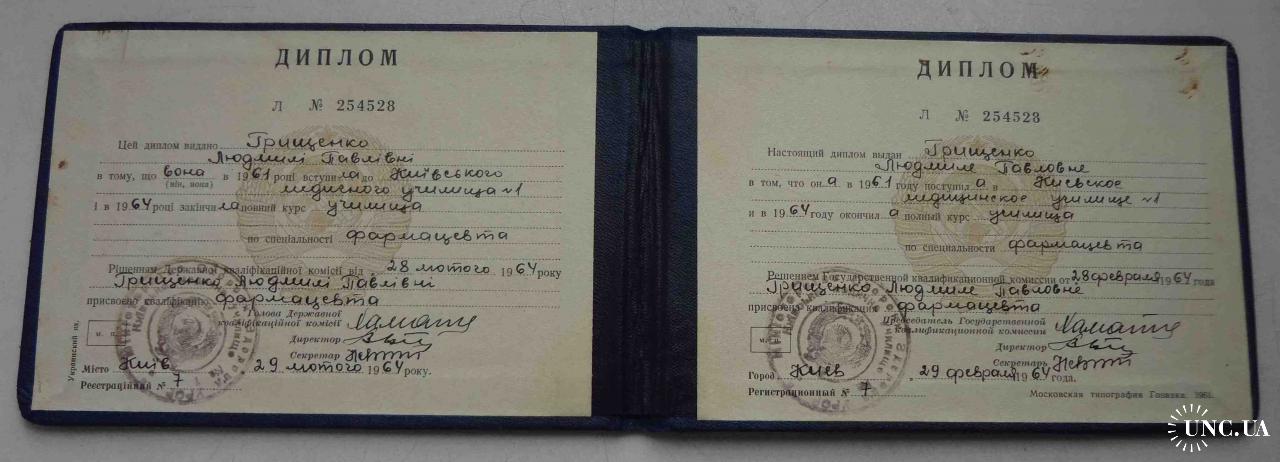 ДИПЛОМ
Л № 254528
Цей диплом видано Грищенко
Людмилі Павлівні
в тому, що вона в 1961 році вступила до Київського
(він, вона)
медичного училища №1
і в 1964 році закінчила повний курс училища
по спеціальності фармацевта
Рішенням Державної кваліфікаційної комісії від 28 лютого 1964 року
Грищенко Людмилі Павлівні
присвоєно кваліфікацію фармацевта
Голова Державної
кваліфікаційної комісії
Директор
Секретар
м. п.
Місто Київ 29 лютого 1964 року.
Реєстраційний № 7
Украинский яз.
ДИПЛОМ
Л № 254528
Настоящий диплом выдан Грищенко
Людмиле Павловне
в том, что она в 1961 году поступила в Киевское
медицинское училище №1
и в 1964 году окончила полный курс училища
по специальности фармацевта
Решением Государственной квалификационной комиссии от 28 февраля 1964 года
Грищенко Людмиле Павловне
присвоена квалификация фармацевта
Председатель Государственной
квалификационной комиссии
Директор
Секретарь
Город Киев 29 февраля 1964 года.
Регистрационный № 7
Московская типография Гознака. 1961.
UNC.UA